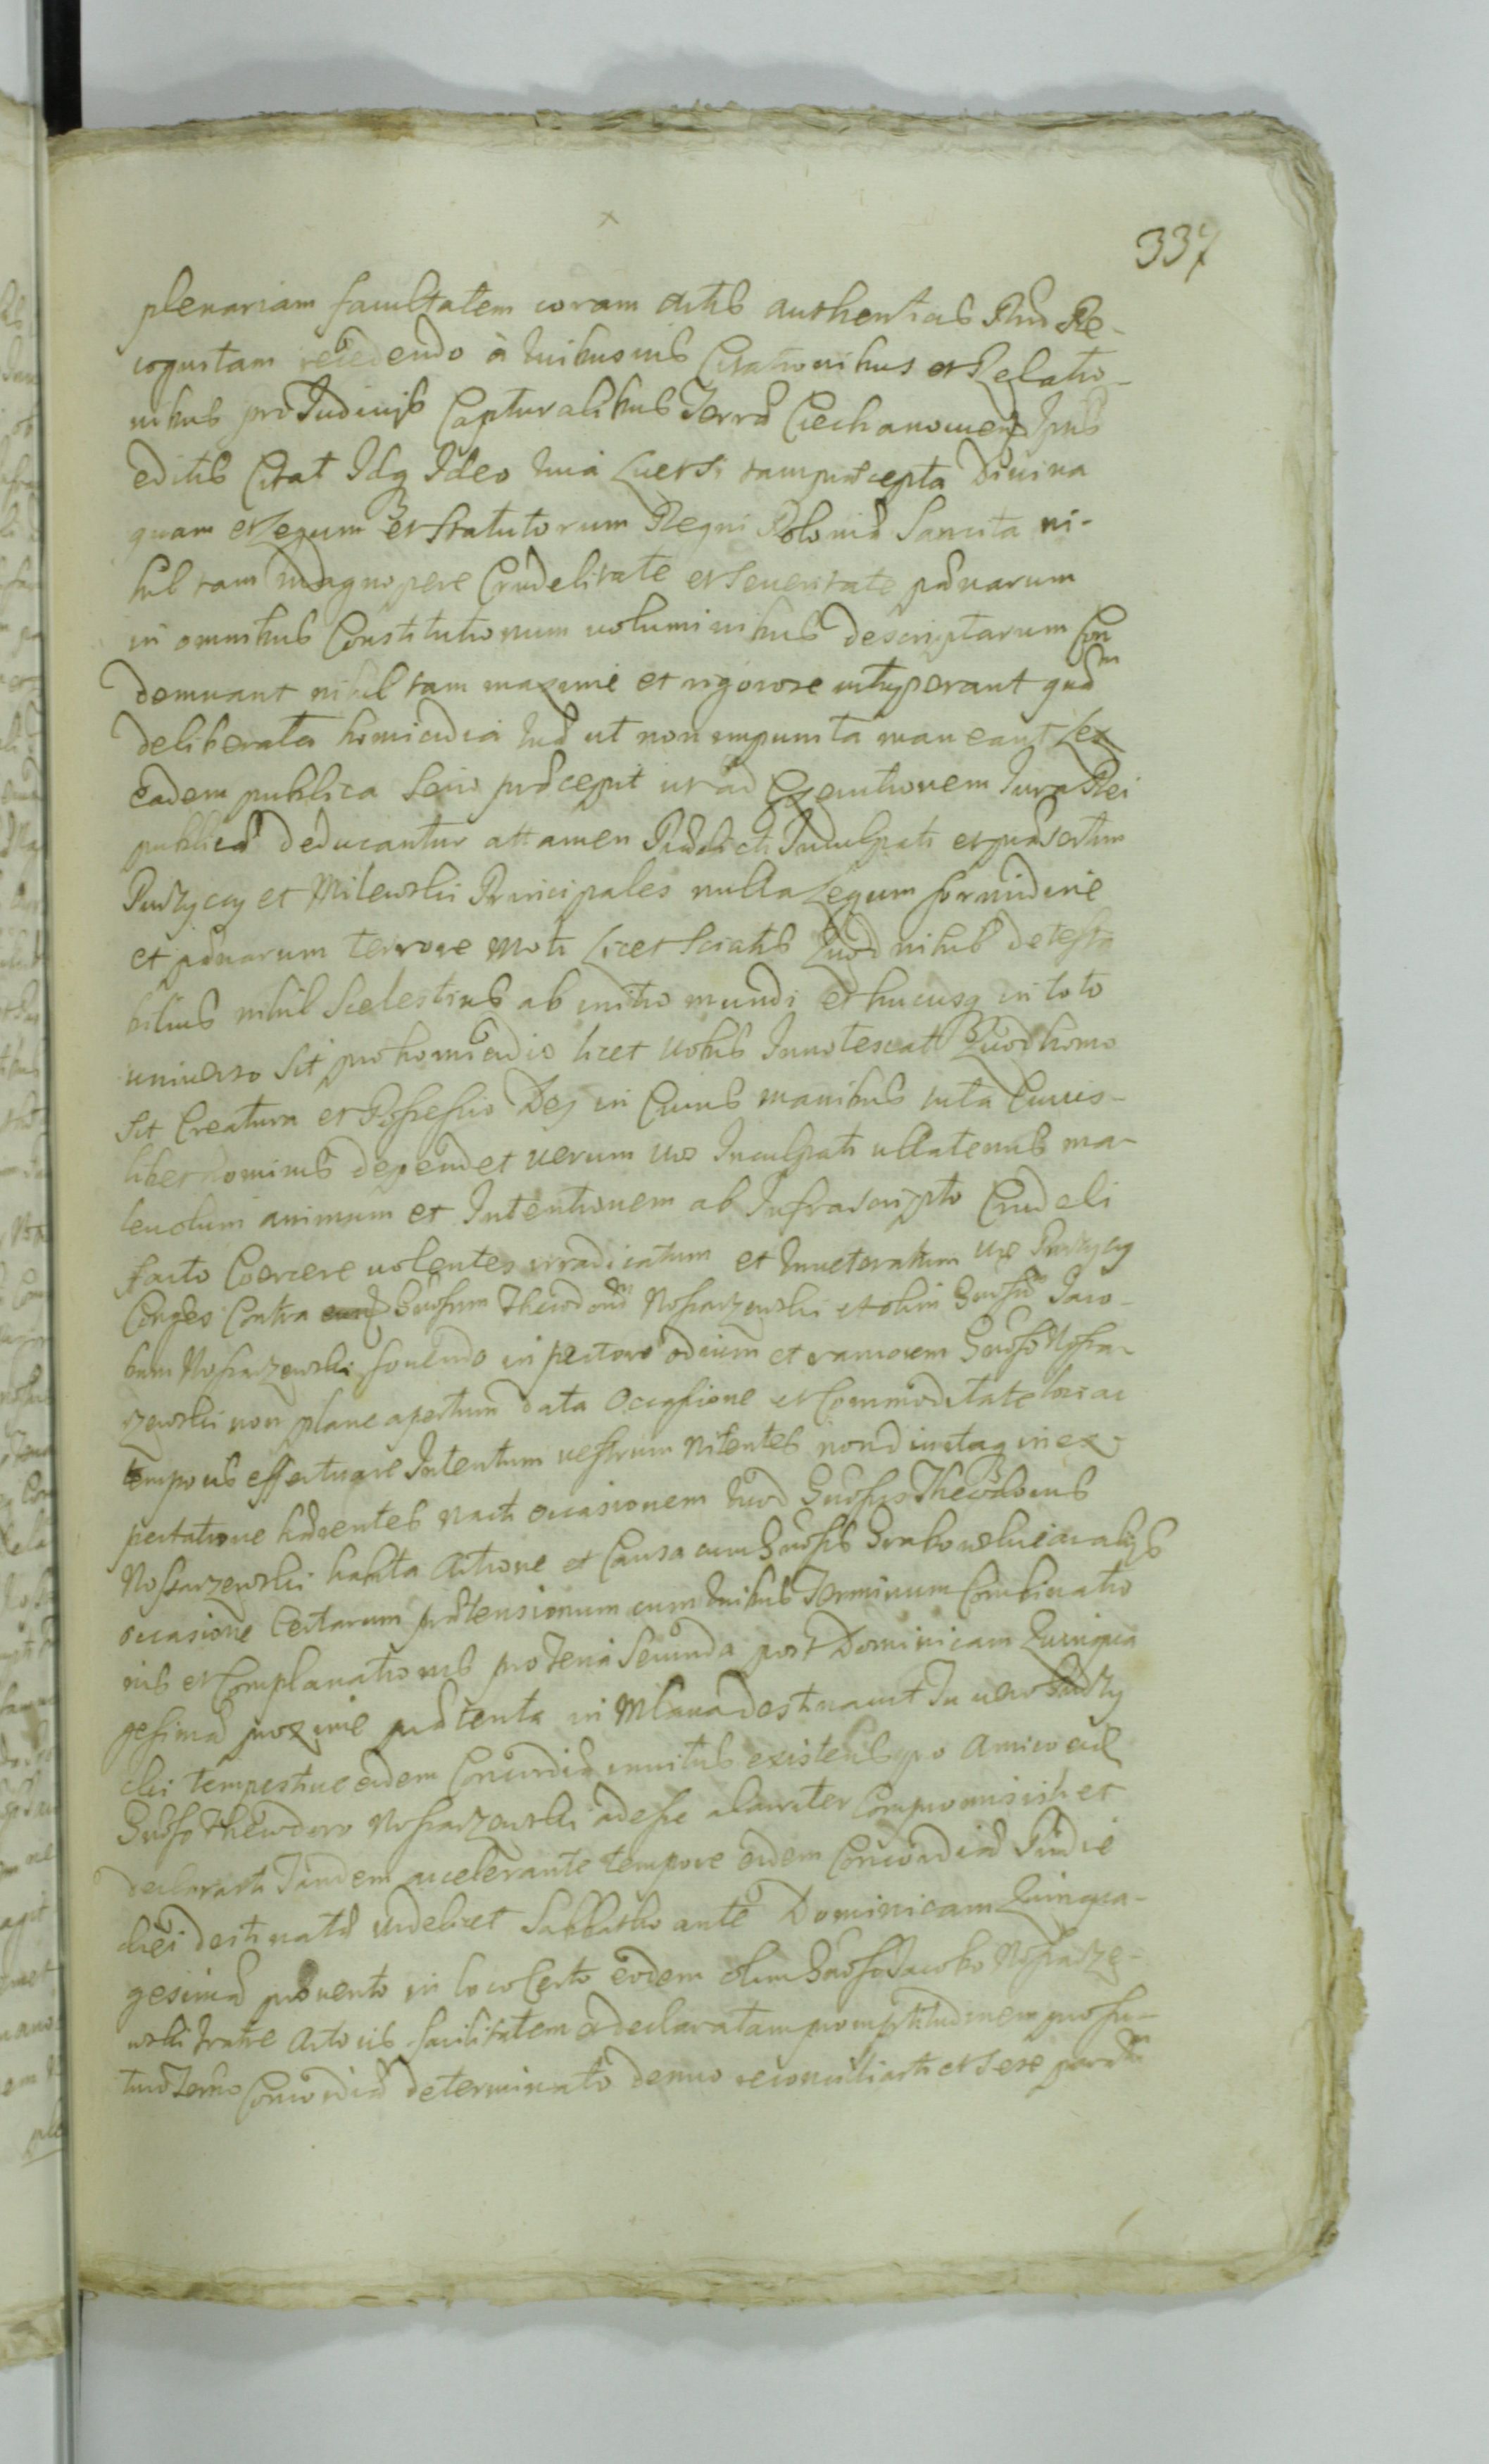 337
plenariam facultatem coram Actis authenticis Re-
cognitam recedendo à Citationibus et Relatio-
nibus pro Judicijs Capturalibus Terræ Ciechanowien
editis Citat Idq Ideo quia tam præcepta Divina
quam et Legum et Statutorum Regni Poloniæ Sancita ni-
hil tam magnopere Crudelitate et Severitate pænarum
in omnibus Constitutionum voluminibus descriptarum Con
demnant nihil tam maxime et rigorose vituperant quam
deliberata homicidia quæ ut non impunita maneant Lex
eadem publica serio præcepit ut ad Exequutionem Jura Rei
publicæ deducantur attamen Inculpati et præsertim
et Milewski Principales nulla Legum formidine
et pænarum terrore moti licet Sciatis quod nihil detesta
bilius nihil Scelestius ab initio mundi et hucusq in toto
universo sit pro homicidio licet vobis Innotescat quod homo
sit Creatura et Possessio Dej in Cuius manibus vita Cuius-
libet hominis dependet verum vos Inculpati ullatenus ma-
levolum animum et Intentionem ab Infrascripto Crudeli
facto Coercere nolentes irradicatum et Inveteratum vos
Contra Gnosum Noskarzewski et olim Gnosum Jaco-
bum Noskarzewski fovendo in pectore odium et rancorem Gnoso Noska-
rzewski non plane apertum data Occasione et Commoditate loci ac
temporis effectuare Intentum vestrum nitentes non diutaq in ex-
pectatione hærentes nacti occasionem quod Gnosus Theodorus
Noskarzewski habita Actione et Causa cum Gnosis Grabowskie ac alijs
occasione Certarum prætensionum cum quibus Terminum Combinatio
nis et Complanationis pro feria Secunda post Dominicam Quinqua
gesimæ proxime præterita in Mlava destinavit Tu vero
cki tempestive eidem Concordiæ invitatus existens pro Amico
Gnoso Theodoro Noskarzewski adesse alacriter Compromisisti et
declarasti Tandem accelerante tempore eidem Concordiæ Pridie
diei destinatæ videlicet Sabbatho ante Dominicam Quinqua-
gesimæ in loco Certo eodem olim Gnoso Jacobo Noskarze-
wski fratre Actoris facilitatem et declaratam promptitudinem pro fu-
turo Concordiæ determinato denuo reconciliasti et sese